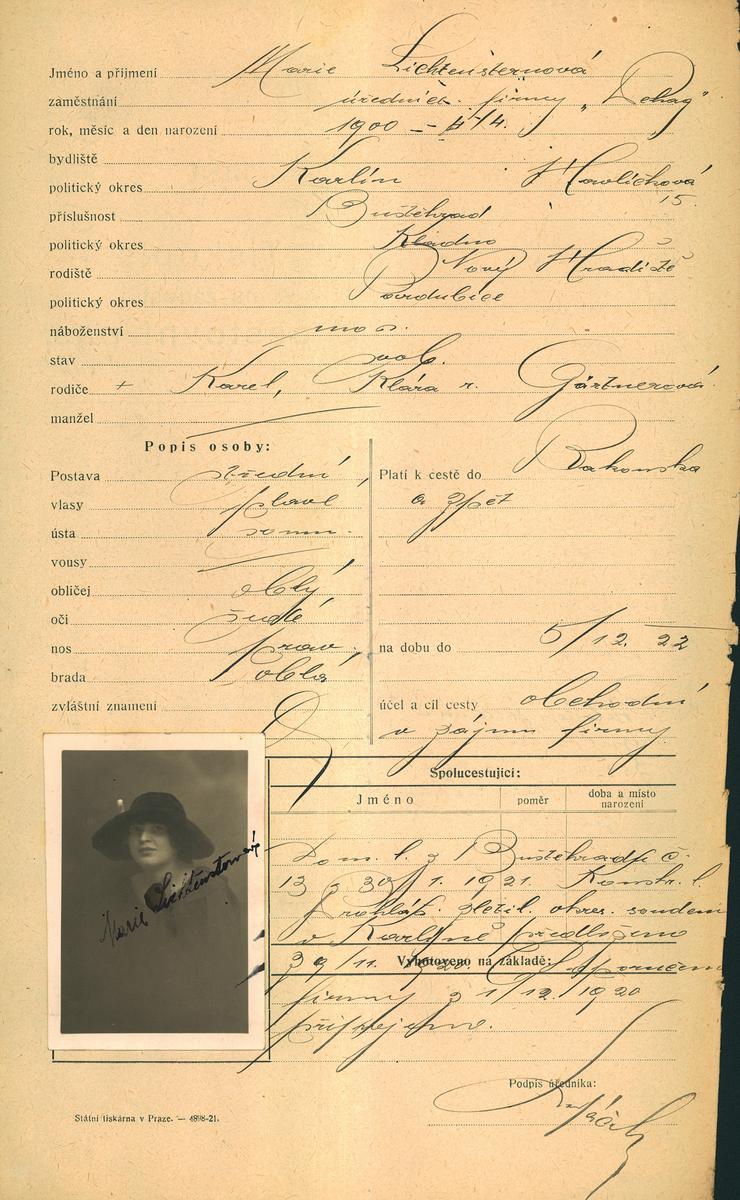 Jméno a příjmení Marie Lichtenšternová
zaměstnání úřednice firmy „Dehag"
rok, měsíc a den narození 1900 14.
bydliště
politický okres Karlín Havlíčková
15.
příslušnost Buštěhrad
politický okres Kladno
rodiště Nový Hradiště
politický okres Pardubice
náboženství mos.
stav svob.
rodiče + Karel, Klára r. Gärtnerová.
manžel
Popis osoby:
Postava střední
vlasy plavé
ústa soum.
vousy
obličej oblý
oči šedé
nos prav.
brada oblá
zvláštní znamení
Platí k cestě do Rakouska
a zpět
na dobu do 5/12. 22
účel a cíl cesty obchodní
v zájmu firmy
Spolucestující:
Jméno poměr doba a místo narození
Dom. l. z Buštěhradu č.
13 z 30/1. 1921. Konstr. l.
Prohláš. okres. soudem
v Karlíně předloženo
30/11. Vyhotoveno na základě:
firmy z 1/12. 1920
připojeno.
Marie Lichtensternová
Podpis úředníka:
Státní tiskárna v Praze. — 4898-21.